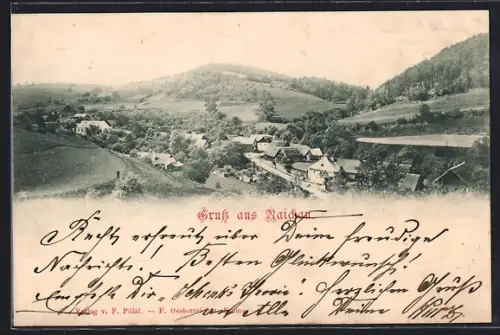 Gruß aus Raichau
Recht erfreut über Deine freudige
Nachricht. Besten Glückwunsch!
Empfehle Dir "Schenk's Theorie". Herzlichen Gruß
für Alle Deine
Verlag v. F. Pölzl. — F. Oesterrei